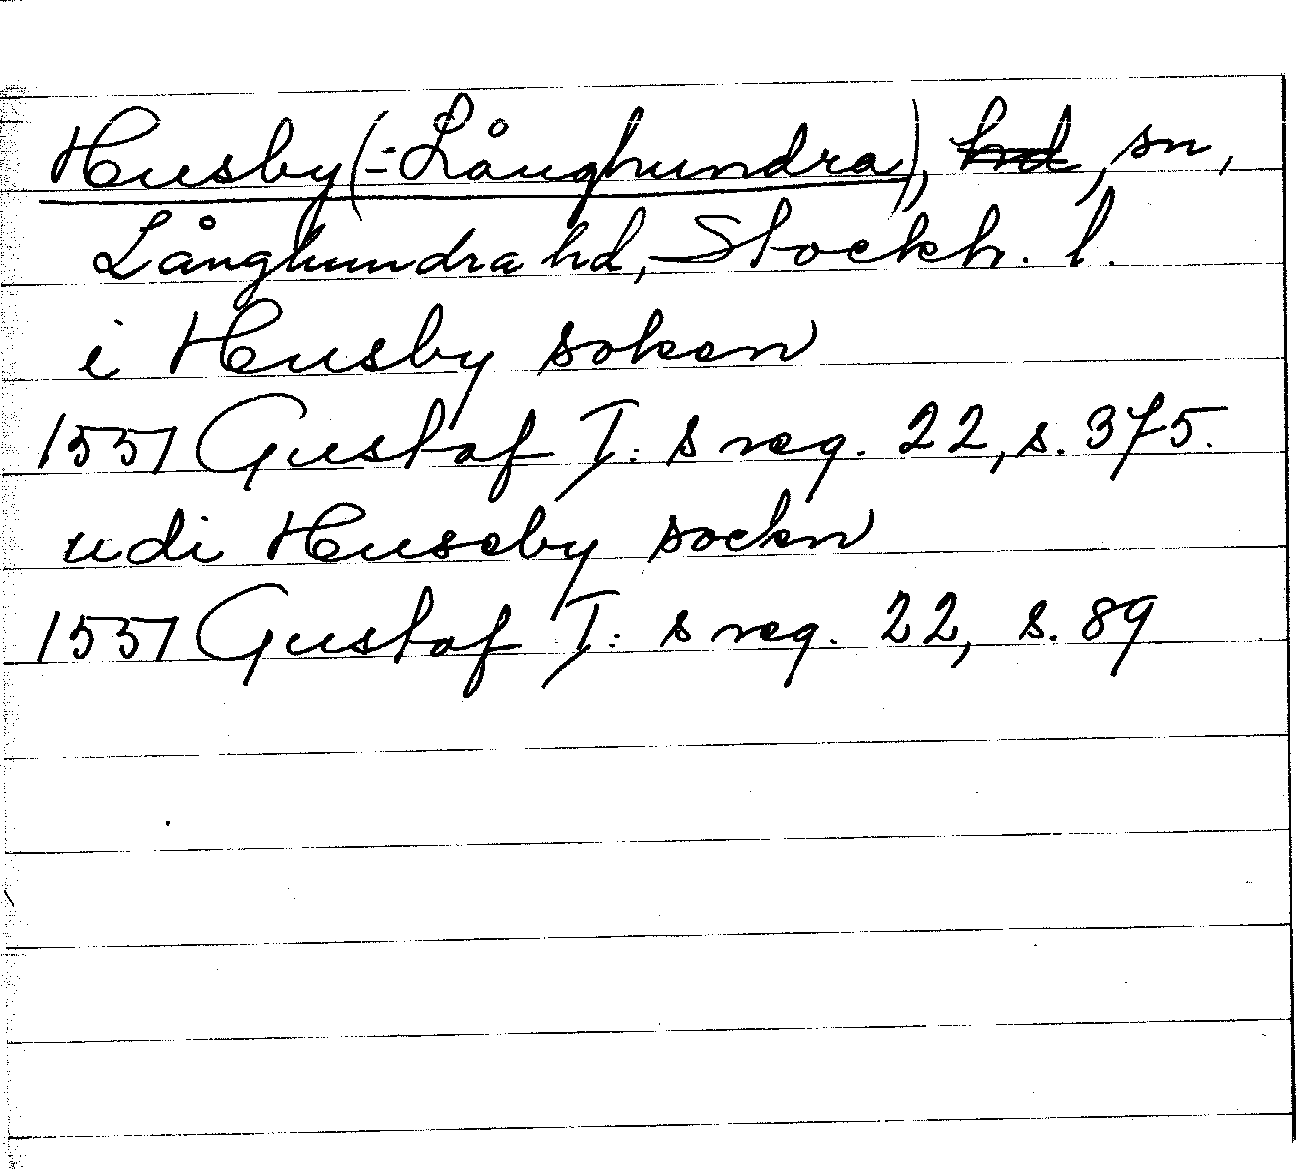 Husby(-Långhundra), hd, sn,
Långhundra hd, Stockh. l.
i Husby soken
1551 Gustaf I: s reg. 22, s. 375.
udi Huseby sockn
1551 Gustaf I: s reg. 22, s. 89